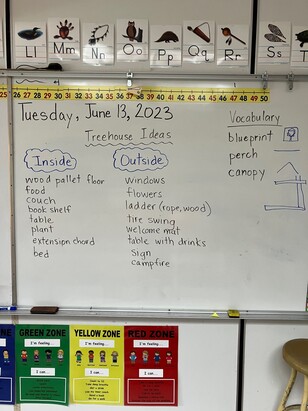 Ll Mm Nn Oo Pp Qq Rr Ss T
25 26 27 28 29 30 31 32 33 34 35 36 37 38 39 40 41 42 43 44 45 46 47 48 49 50
Tuesday, June 13, 2023
Treehouse Ideas
Inside
wood pallet floor
food
couch
book shelf
table
plant
extension chord
bed
Outside
windows
flowers
ladder (rope, wood)
tire swing
welcome mat
table with drinks
sign
campfire
Vocabulary
blueprint
perch
canopy
GREEN ZONE
I'm feeling...
I can...
YELLOW ZONE
I'm feeling...
I can...
RED ZONE
I'm feeling...
I can...